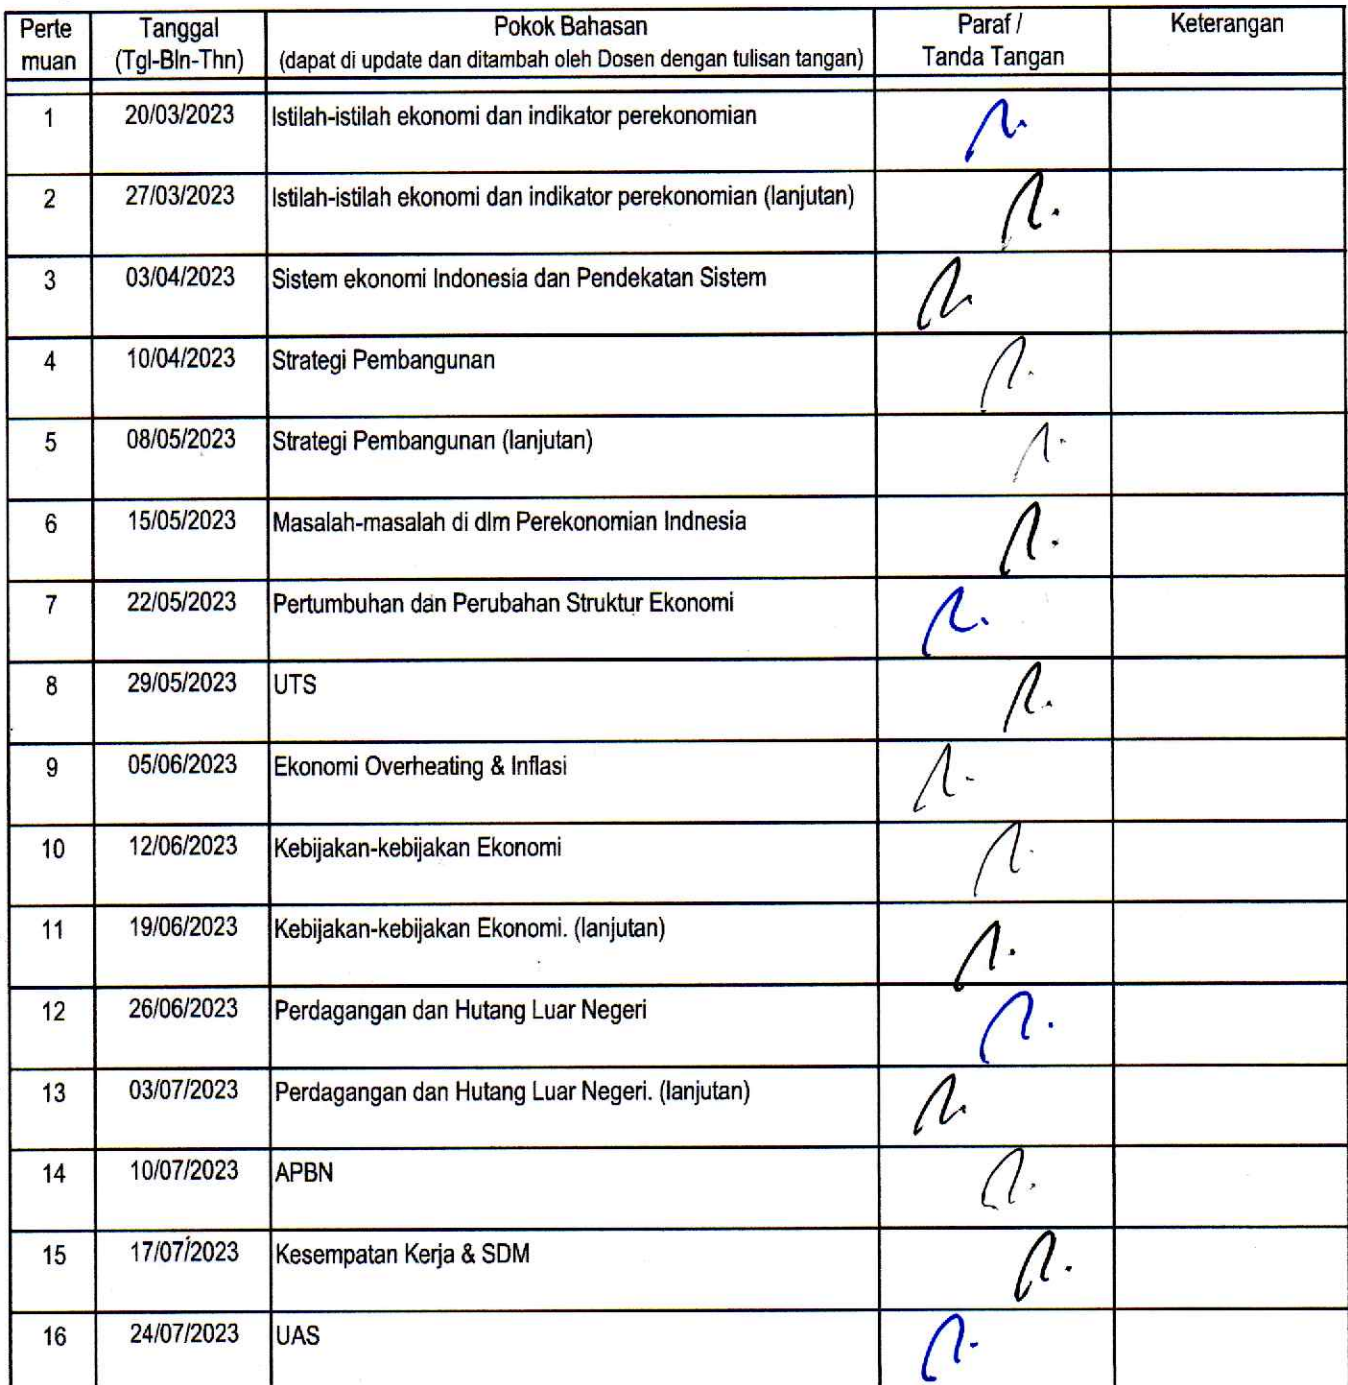 Perte Tanggal Pokok Bahasan Paraf / Keterangan
muan (Tgl-Bln-Thn) (dapat di update dan ditambah oleh Dosen dengan tulisan tangan) Tanda Tangan
1 20/03/2023 Istilah-istilah ekonomi dan indikator perekonomian
2 27/03/2023 Istilah-istilah ekonomi dan indikator perekonomian (lanjutan)
3 03/04/2023 Sistem ekonomi Indonesia dan Pendekatan Sistem
4 10/04/2023 Strategi Pembangunan
5 08/05/2023 Strategi Pembangunan (lanjutan)
6 15/05/2023 Masalah-masalah di dlm Perekonomian Indnesia
7 22/05/2023 Pertumbuhan dan Perubahan Struktur Ekonomi
8 29/05/2023 UTS
9 05/06/2023 Ekonomi Overheating & Inflasi
10 12/06/2023 Kebijakan-kebijakan Ekonomi
11 19/06/2023 Kebijakan-kebijakan Ekonomi. (lanjutan)
12 26/06/2023 Perdagangan dan Hutang Luar Negeri
13 03/07/2023 Perdagangan dan Hutang Luar Negeri. (lanjutan)
14 10/07/2023 APBN
15 17/07/2023 Kesempatan Kerja & SDM
16 24/07/2023 UAS